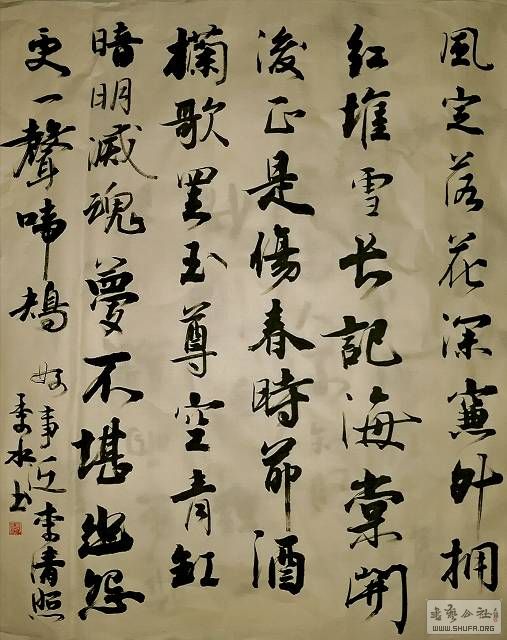 風定落花深簾外拥
红堆雪长記海棠開
後正是傷春時節酒
欄歌罢玉尊空青缸
暗明滅魂夢不堪幽怨
更一聲啼鴂
好事近李清照
季水书
书艺公社
WWW.SHUFA.ORG